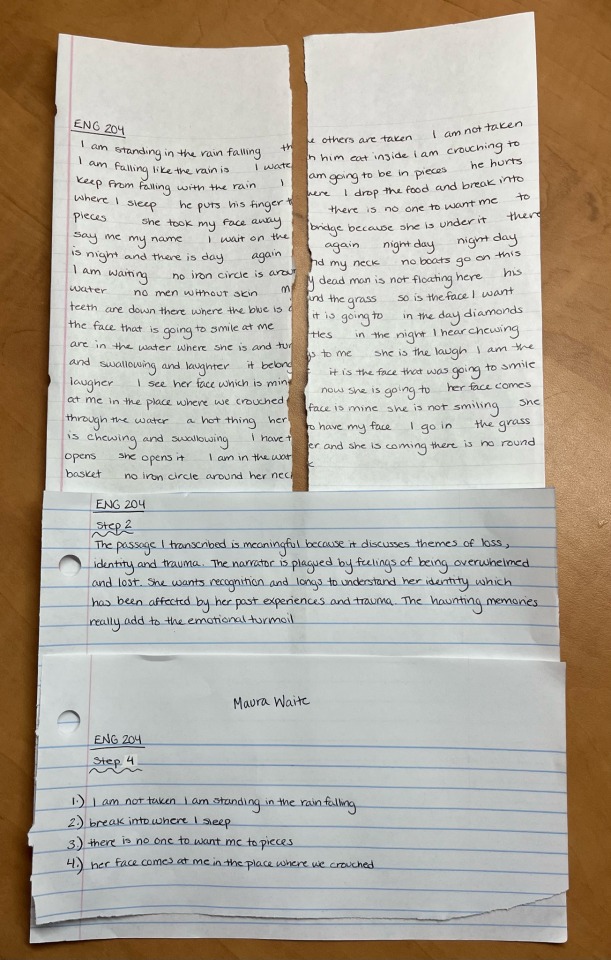 ENG 204
I am standing in the rain falling th
I am falling like the rain is I wate
keep from falling with the rain I
where I sleep he puts his finger t
pieces she took my face away
say me my name I wait on the
is night and there is day again
I am waiting no iron circle is arou
water no men without skin m
teeth are down there where the blue is
the face that is going to smile at me
are in the water where she is and tur
and swallowing and laughter it belong
laugher I see her face which is mine
at me in the place where we crouched
through the water a hot thing her
is chewing and swallowing I have t
opens she opens it I am in the wat
basket no iron circle around her neck
others are taken I am not taken
him eat inside i am crouching to
am going to be in pieces he hurts
here I drop the food and break into
there is no one to want me to
bridge because she is under it there
again night day night day
nd my neck no boats go on this
y dead man is not floating here his
and the grass so is the face I want
it is going to in the day diamonds
tles in the night I hear chewing
s to me she is the laugh I am the
it is the face that was going to smile
now she is going to her face comes
face is mine she is not smiling she
to have my face I go in the grass
er and she is coming there is no round
ENG 204
Step 2
The passage I transcribed is meaningful because it discusses themes of loss,
identity and trauma. The narrator is plagued by feelings of being overwhelmed
and lost. She wants recognition and longs to understand her identity which
has been affected by her past experiences and trauma. The haunting memories
really add to the emotional turmoil
Maura Waite
ENG 204
Step 4
1.) I am not taken I am standing in the rain falling
2.) break into where I sleep
3.) there is no one to want me to pieces
4.) her face comes at me in the place where we crouched